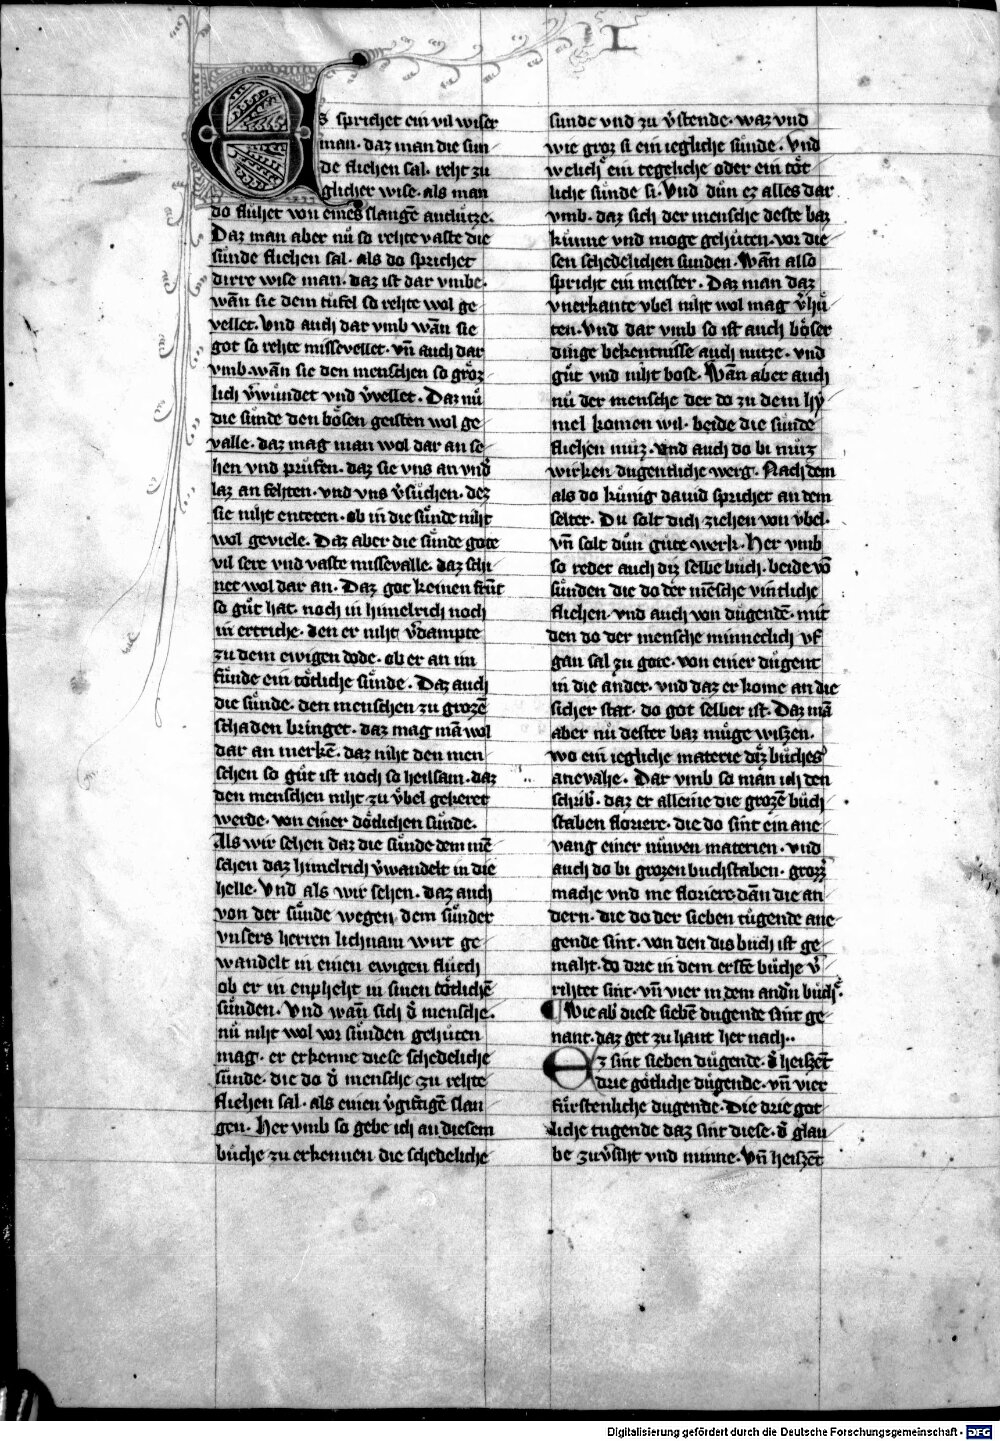 I
Es sprichet ein vil wiser
man. daz man die sun
de fliehen sal. reht zu
glicher wise. als man
do fluhet von eines slangē anclůtze.
Daz man aber nů so rehte vaste die
sůnde fliehen sal. als do sprichet
dirre wise man. daz ist dar vmbe.
wān sie dem tufel so rehte wol ge
vellet. Vnd auch dar vmb wān sie
got so rehte missevellet. vn̄ auch dar
vmb. wān sie den menschen so grőz
lich v̓wůndet vnd v̓vellet. Daz nů
die sůnde den bősen geisten wol ge
valle. daz mag man wol dar an se
hen vnd průfen. daz sie vns an vnd̓
laz an fehten. vnd vns v̓sůchen. dez
sie niht enteten. ob in die sůnde niht
wol geviele. Daz aber die sůnde gote
vil sere vnd vaste missevalle. daz schi
net wol dar an. Daz got keinen frűnt
so gůt hat. noch in himelrich noch
in ertriche. den er niht v̓dampte
zu dem ewigen dode. ob er an im
fůnde ein tőtliche sůnde. Daz auch
die sůnde. den menschen zu grozē
schaden bringet. daz mag mā wol
dar an merkē. daz niht den men
schen so gůt ist noch so heilsam. daz
den menschen niht zu v̊bel gekeret
werde. von einer dőtlichen sůnde.
Als wir sehen daz die sůnde dem mē
schen daz himelrich v̓wandelt in die
helle. Vnd als wir sehen. daz auch
von der sůnde wegen dem sůnder
vnsers herren lichnam wirt ge
wandelt in einen ewigen flůch
ob er in enpheht in sinen tőtlichē
sůnden. Vnd wan̄ sich d̓ mensche.
nů niht wol vor sůnden gehůten
mag. er erkenne diese schedeliche
sůnde. die do d̓ mensche zu rehte
fliehen sal. als einen v̓giftigē slan
gen. Her vmb so gebe ich an diesem
bůche zu erkennen die schedeliche
sunde vnd zu v̓stende. waz vnd
wie groz si ein iegliche sůnde. Vnd
welich̓ ein tegeliche oder ein tőt
liche sůnde si. Vnd důn ez alles dar
vmb. daz sich der mensche deste baz
kůnne vnd moge gehůten. vor die
sen schedelichen sunden. Wān also
spricht ein meister. Daz man daz
vnerkante vbel niht wol mag v̓hů
ten. Vnd dar vmb so ist auch bőser
dinge bekentnisse auch nutze. vnd
gůt vnd niht bose. Wān aber auch
nů der mensche der do zu dem hy
mel komen wil. beide die sůnde
fliehen můz. vnd auch do bi můz
wirken dugentliche werg. Nach dem
als do kůnig dauid sprichet an dem
selter. Du solt dich ziehen von v̊bel.
vn̄ solt důn gůte werk. Her vmb
so redet auch diz selbe bůch. beide vō
sůnden die do der mēsche vintliche
fliehen. vnd auch von důgendē. mit
den do der mensche minneclich vf
gan sal zu gote. von einer důgent
in die ander. vnd daz er kome an die
sicher stat. do got selber ist. Daz mā
aber nů dester baz můge wiszen.
wo ein iegliche materie diz̓ bůches
anevahe. Dar vmb so man ich den
schrib̓. daz er alleine die grozē bůch
staben floriere. die do sint ein ane
vang einer nůwen materien. vnd
auch do bi grozen buchstaben. grozz̓
mache vnd me floriere. dān die an
dern. die do der sieben tůgende ane
gende sint. von den dis bůch ist ge
maht. do drie in dem erstē bůche v̓
rihtet sint. vn̄ vier in dem and̓n bůch̓.
¶ Wie ab̓ diese siebē dugende sint ge
nant. daz get zu hant her nach..
Ez sint sieben důgende. d̓ heiszēt
drie gőtliche důgende. vn̄ vier
fůrstenliche dugende. Die drie got
liche tugende daz sint diese. d̓ glau
be zuv̓siht vnd minne. Vn̄ heiszēt
Digitalisierung gefördert durch die Deutsche Forschungsgemeinschaft - DFG